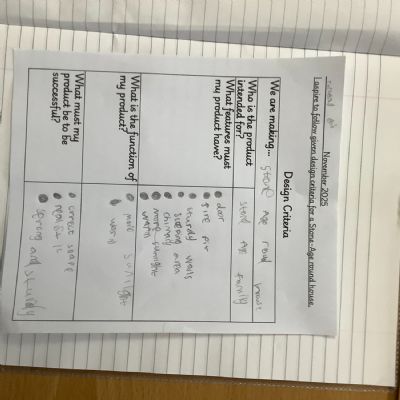 November 2025
I aspire to follow given design criteria for a Stone-Age round house.
Design Criteria
We are making...
Stone Age round house
Who is the product
intended for?
Stone Age family
What features must
my product have?
door
fire pit
sturdy walls
sleeping area
chimney
warm
What is the function of
my product?
warm
What must my
product be to be
successful?
correct shape
strong and sturdy